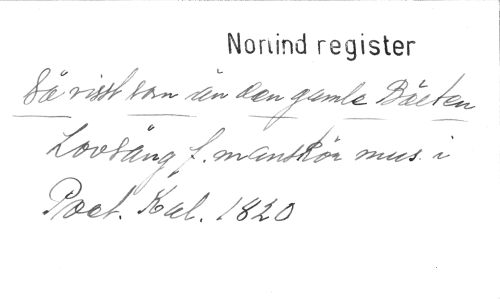 Nordind register
Så visst som än den gamle Bälten
Lovsång f. manskör mus. i
Poet. Kal. 1820